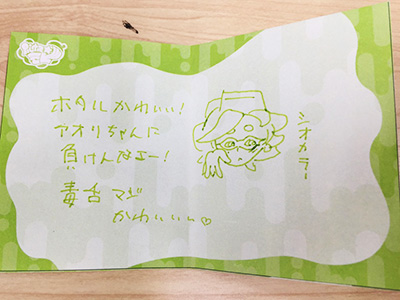 ホタルかわいい!
アオリちゃんに
負けんなエー!
毒舌マジ
かわいいぃ♡
シオカラー